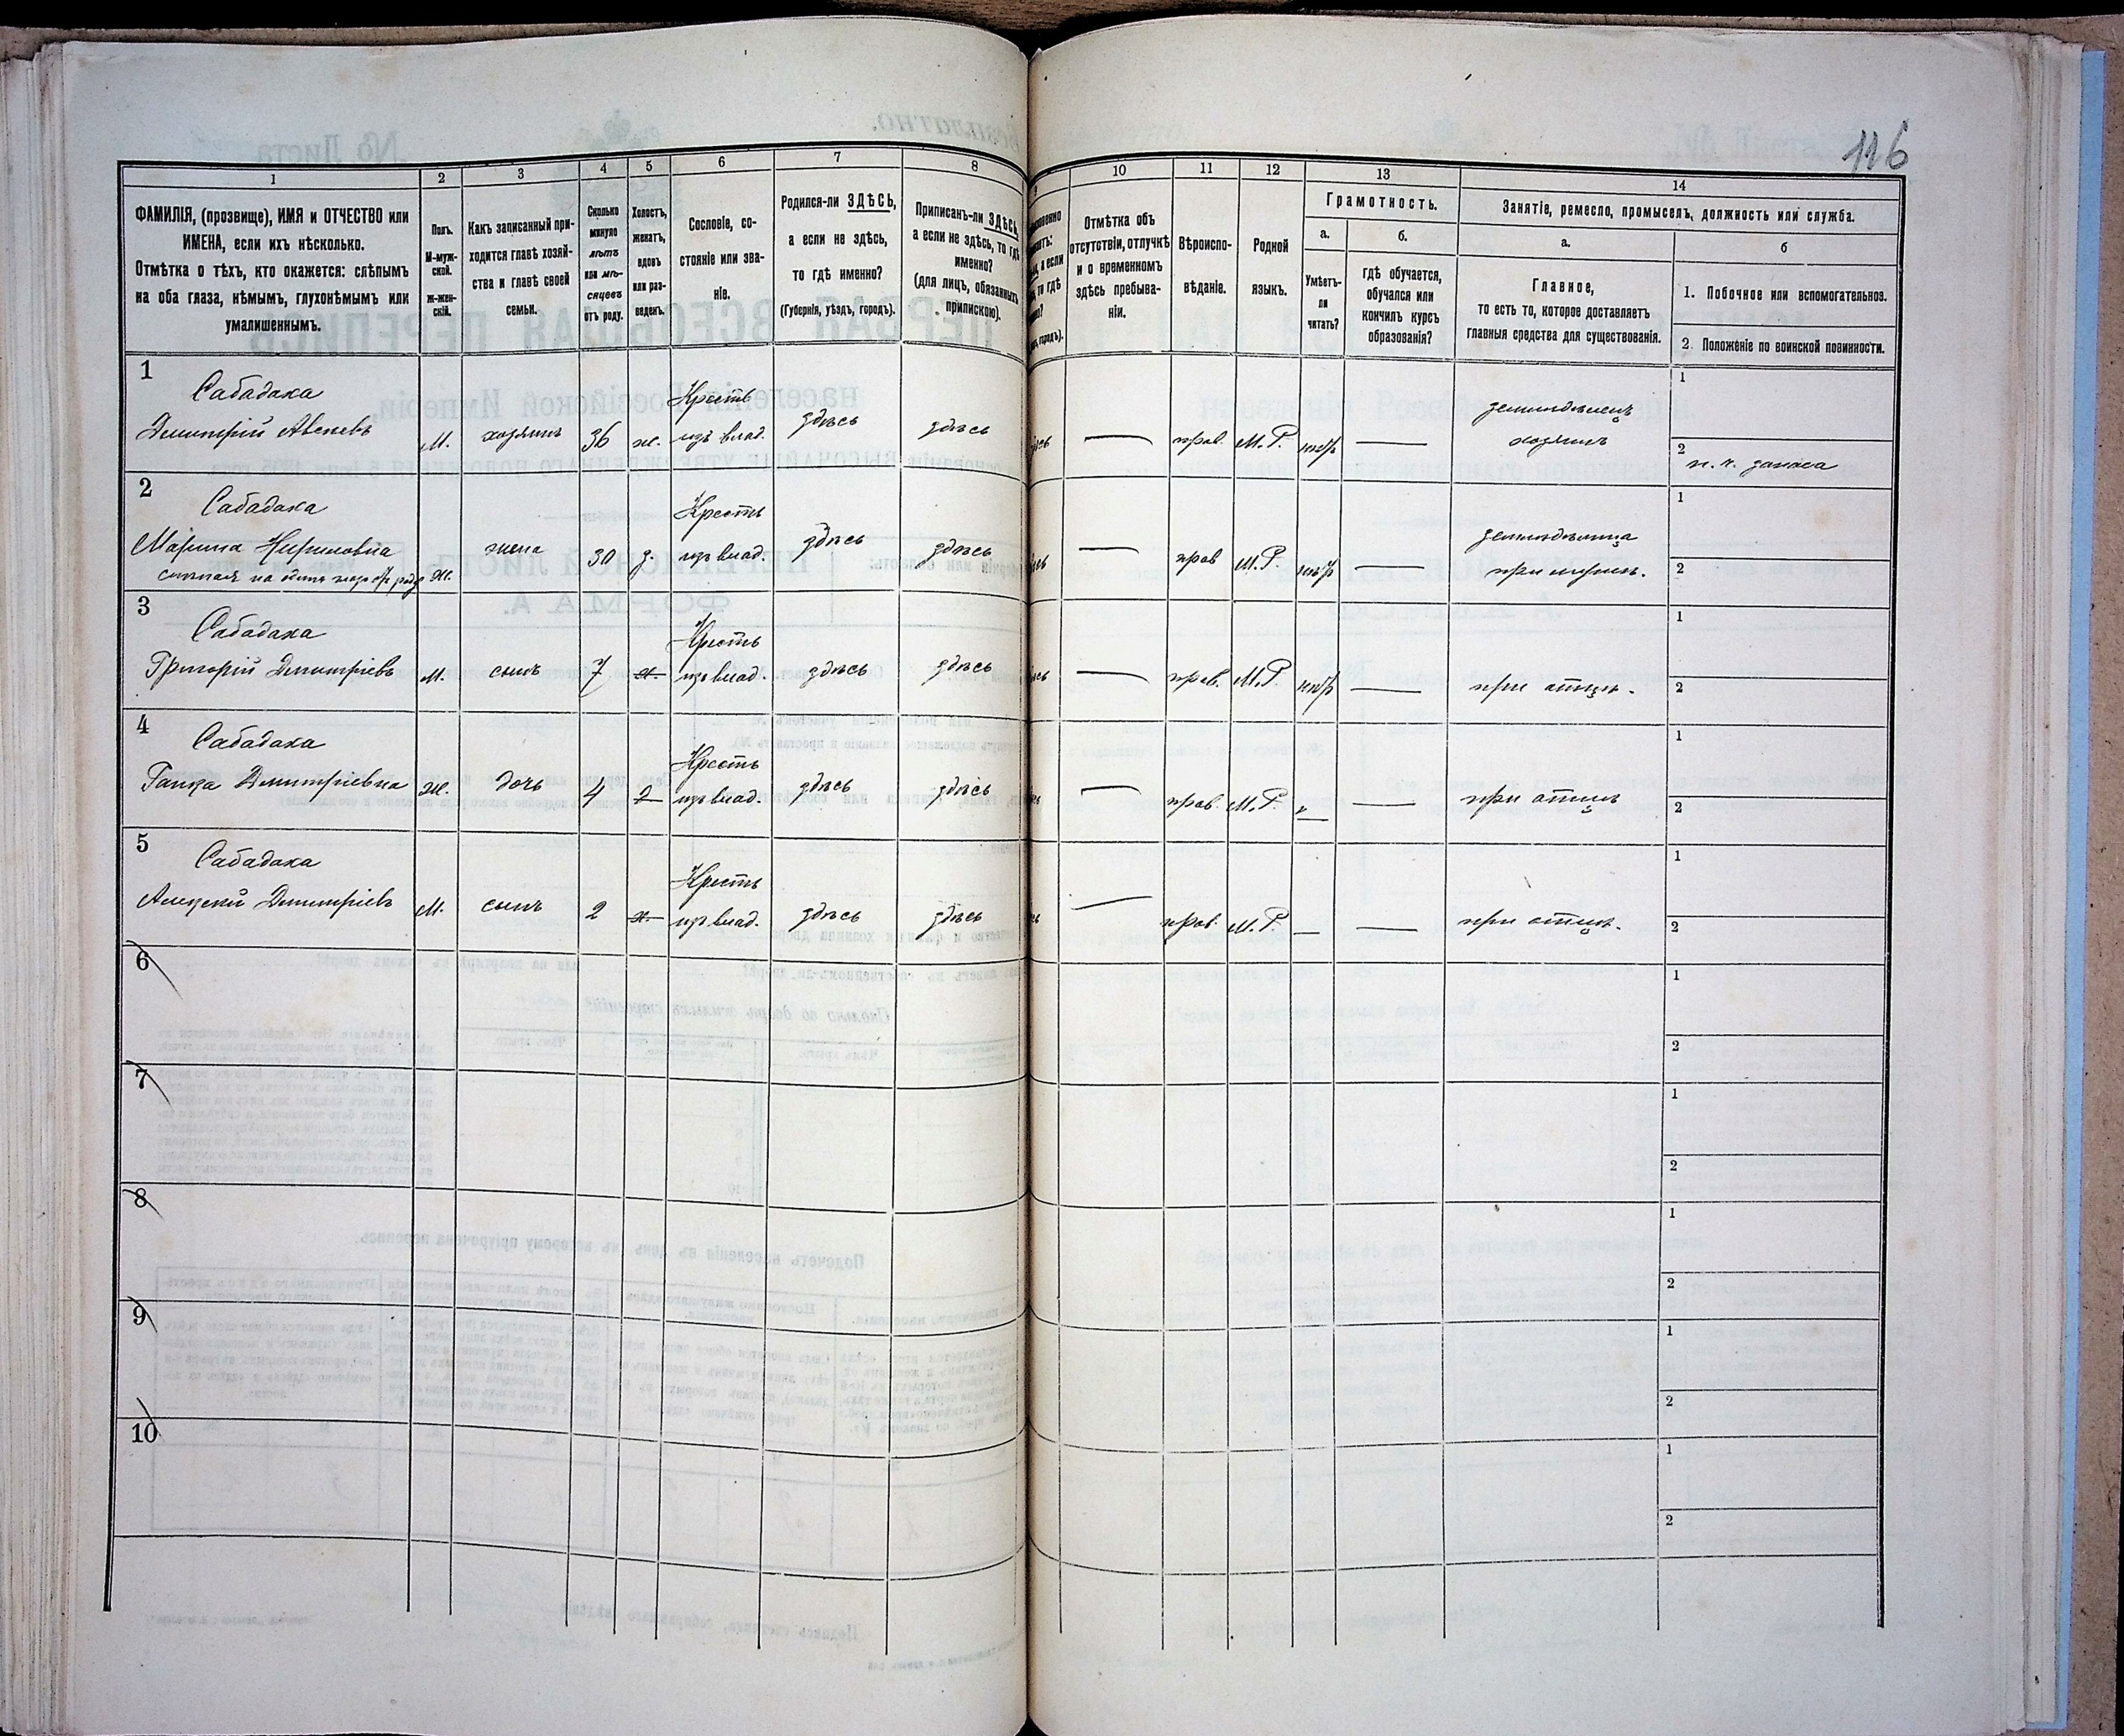 116
1
2
3
4
5
6
7
8
9
10
11
12
13
14
ФАМИЛІЯ, (прозвище), ИМЯ и ОТЧЕСТВО или
ИМЕНА, если ихъ нѣсколько.
Отмѣтка о тѣхъ, кто окажется: слѣпымъ
на оба глаза, нѣмымъ, глухонѣмымъ или
умалишеннымъ.
Полъ.
М-муж-
ской.
ж-жен-
скій.
Какъ записанный при-
ходится главѣ хозяй-
ства и главѣ своей
семьи.
Сколько
минуло
лѣтъ
или мѣ-
сяцевъ
отъ роду.
Холостъ,
женатъ,
вдовъ
или раз-
веденъ.
Сословіе, со-
стояніе или зва-
ніе.
Родился-ли ЗДѢСЬ,
а если не здѣсь,
то гдѣ именно?
(Губернія, уѣздъ, городъ).
Приписанъ-ли ЗДѢСЬ,
а если не здѣсь, то гдѣ
именно?
(для лицъ, обязанныхъ
припискою).
Отмѣтка объ
отсутствіи, отлучкѣ
и о временномъ
здѣсь пребыва-
ніи.
Вѣроиспо-
вѣданіе.
Родной
языкъ.
Грамотность.
а.
б.
Умѣетъ-
ли
читать?
гдѣ обучается,
обучался или
кончилъ курсъ
образованія?
Занятіе, ремесло, промыселъ, должность или служба.
а.
б
Главное,
то есть то, которое доставляетъ
главныя средства для существованія.
1. Побочное или вспомогательное.
2. Положеніе по воинской повинности.
1
Сабадаха
Дмитрій
М.
хозяинъ
36
ж.
Крестъ
изъ влад.
здѣсь
здѣсь
прав.
М.Р.
земледѣлецъ
хозяинъ
1
2
запаса
2
Сабадаха
Марина
ж.
жена
30
з.
Крестъ
изъ влад.
здѣсь
здѣсь
прав
М.Р.
при мужѣ.
1
2
3
Сабадаха
Григорій Дмитріевъ
М.
сынъ
7
х.
Крестъ
изъ влад.
здѣсь
здѣсь
прав.
М.Р.
при отцѣ.
1
2
4
Сабадаха
Дмитріевна
Ж.
дочь
4
Крестъ
изъ влад.
здѣсь
здѣсь
прав.
М.Р.
при отцѣ
1
2
5
Сабадаха
Алексѣй Дмитріевъ
М.
сынъ
2
х.
Крестъ
изъ влад.
здѣсь
здѣсь
прав.
М.Р.
при отцѣ.
1
2
6
1
2
7
1
2
8
1
2
9
1
2
10
1
2